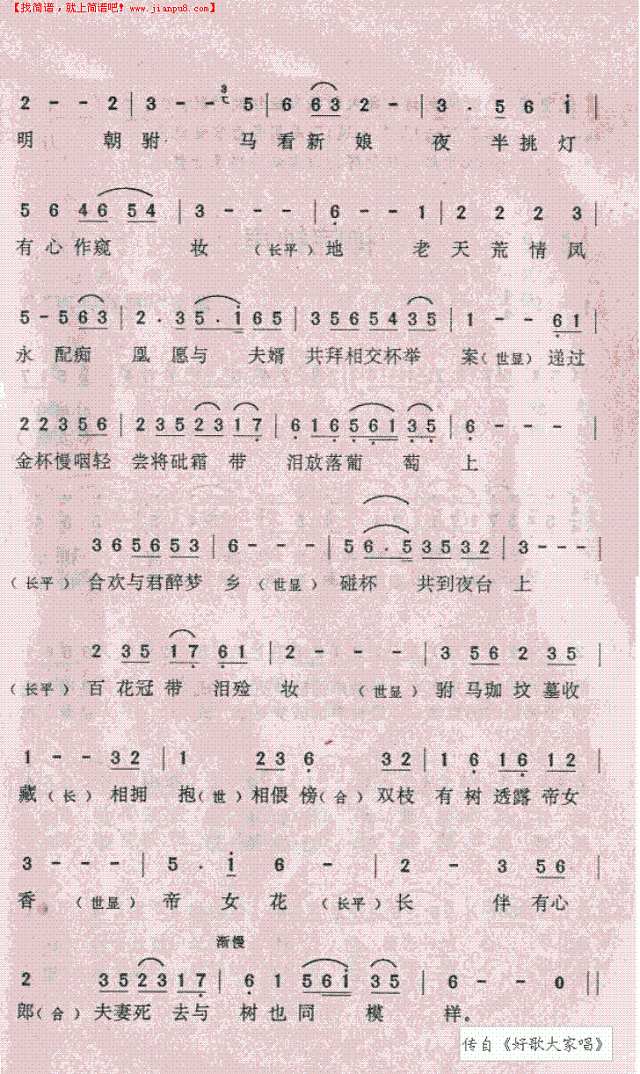 【找简谱，就上简谱吧！www.jianpu8.com】
2 - - 2 | 3 - - 5 | 6 6 3 2 - | 3 · 5 6 i |
明 朝驸 马看新娘 夜半挑灯
5 6 4 6 5 4 | 3 - - - | 6 - - 1 | 2 2 2 3 |
有心作窥 妆 （长平）地 老天荒情凤
5 - 5 6 3 | 2 · 3 5 · i 6 5 | 3 5 6 5 4 3 5 | 1 - - 6 1 |
永 配痴 凰 愿与 夫婿 共拜相交杯举 案（世显）递过
2 2 3 5 6 | 2 3 5 2 3 1 7 | 6 1 6 5 6 1 3 5 | 6 - - -
金杯慢咽轻 尝将砒霜 带 泪放落葡 萄 上
3 6 5 6 5 3 | 6 - - - | 5 6 · 5 3 5 3 2 | 3 - - - |
（长平）合欢与君醉梦 乡（世显）碰杯 共到夜台 上
2 3 5 1 7 6 1 | 2 - - - | 3 5 6 2 3 5 |
（长平）百花冠 带 泪殓 妆 （世显）驸马珈坟墓收
1 - - 3 2 | 1 2 3 6 3 2 | 1 6 1 6 1 2 |
藏（长）相拥 抱（世）相偎傍（合）双枝 有树透露帝女
3 - - - | 5 · i 6 - | 2 - 3 5 6 |
香。（世显）帝 女花（长平）长 伴有心
渐慢
2 3 5 2 3 1 7 | 6 1 5 6 i 3 5 | 6 - - 0 ||
郎（合）夫妻死 去与 树也同 模 样。
传自《好歌大家唱》